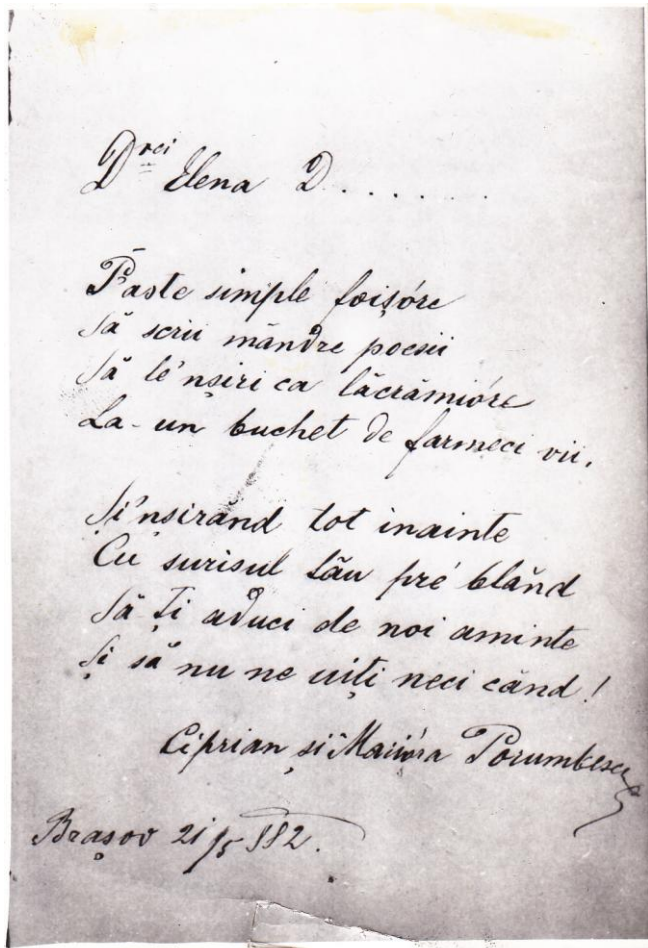 Drei Elena D........
Paste simple foișóre
Să scrii măndre poesii
Să le'nșiri ca lăcrămióre
La-un buchet de farmeci vii.
Și'nsirănd tot inainte
Cu surisul tău pré blănd
Să-Ți aduci de noi aminte
Și să nu ne uiți neci cănd!
Ciprian și Marióra Porumbescu
Brașov 21/5 882.